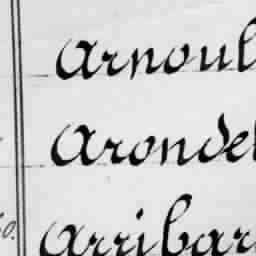 Arnoul
Arondel
Arribar